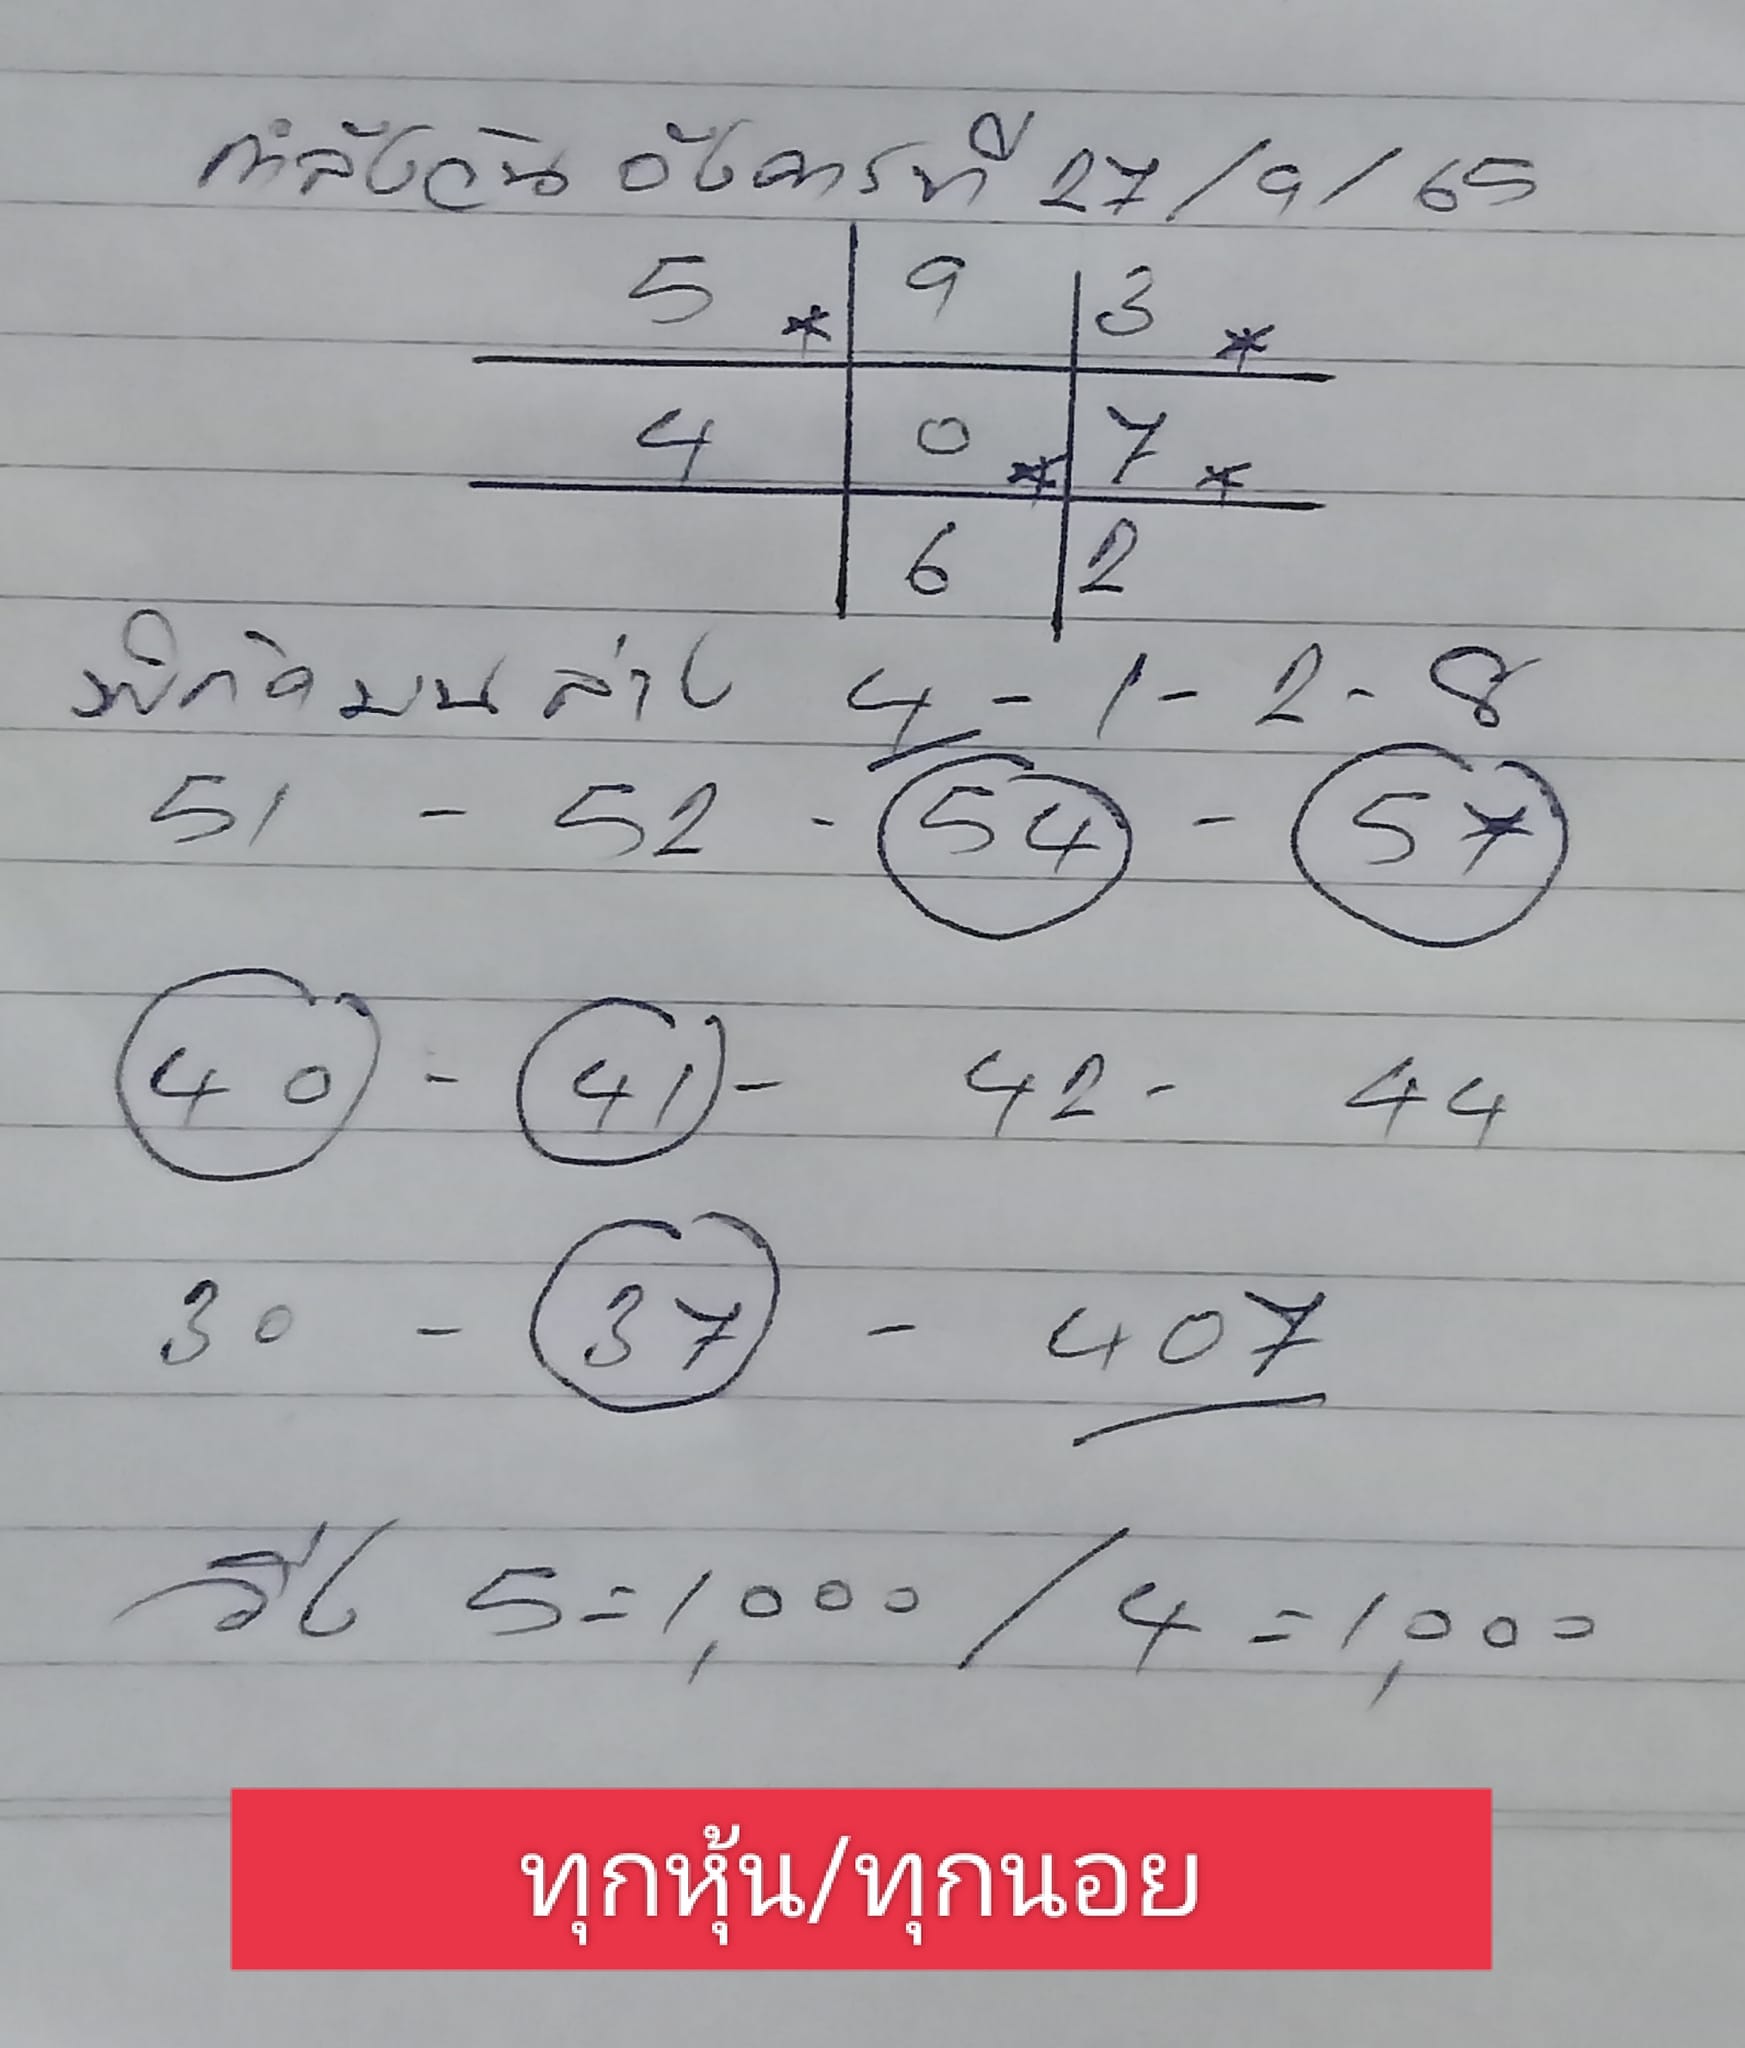 กำลังวัน อังคารที่ 27/9/65
5 * 9 3 *
4 0 * 7 *
6 2
พิกัดบนล่าง 4 - 1 - 2 - 8
51 - 52 - 54 - 57
40 - 41 - 42 - 44
30 - 37 - 407
วิ่ง 5 = 1,000 / 4 = 1,000
ทุกหุ้น/ทุกนอย